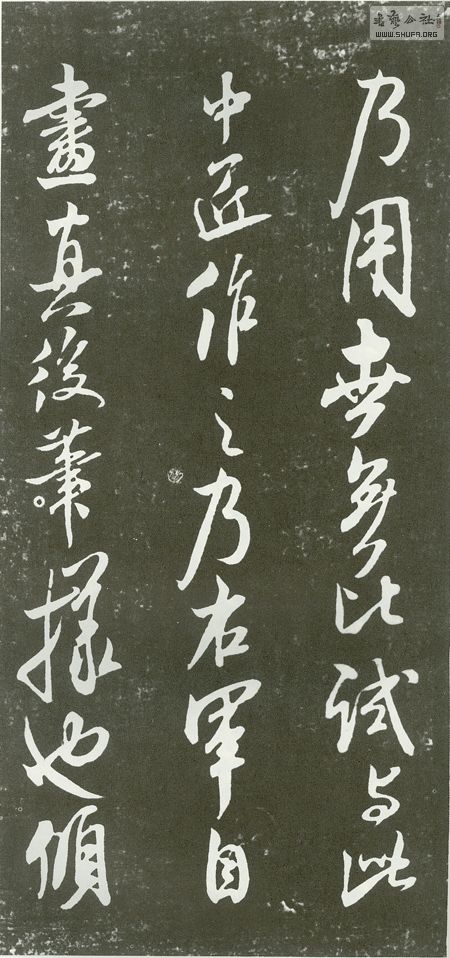 書藝公社
WWW.SHUFA.ORG
乃用世無比試与此
中匠作之乃右軍自
畫真後筆樣也傾